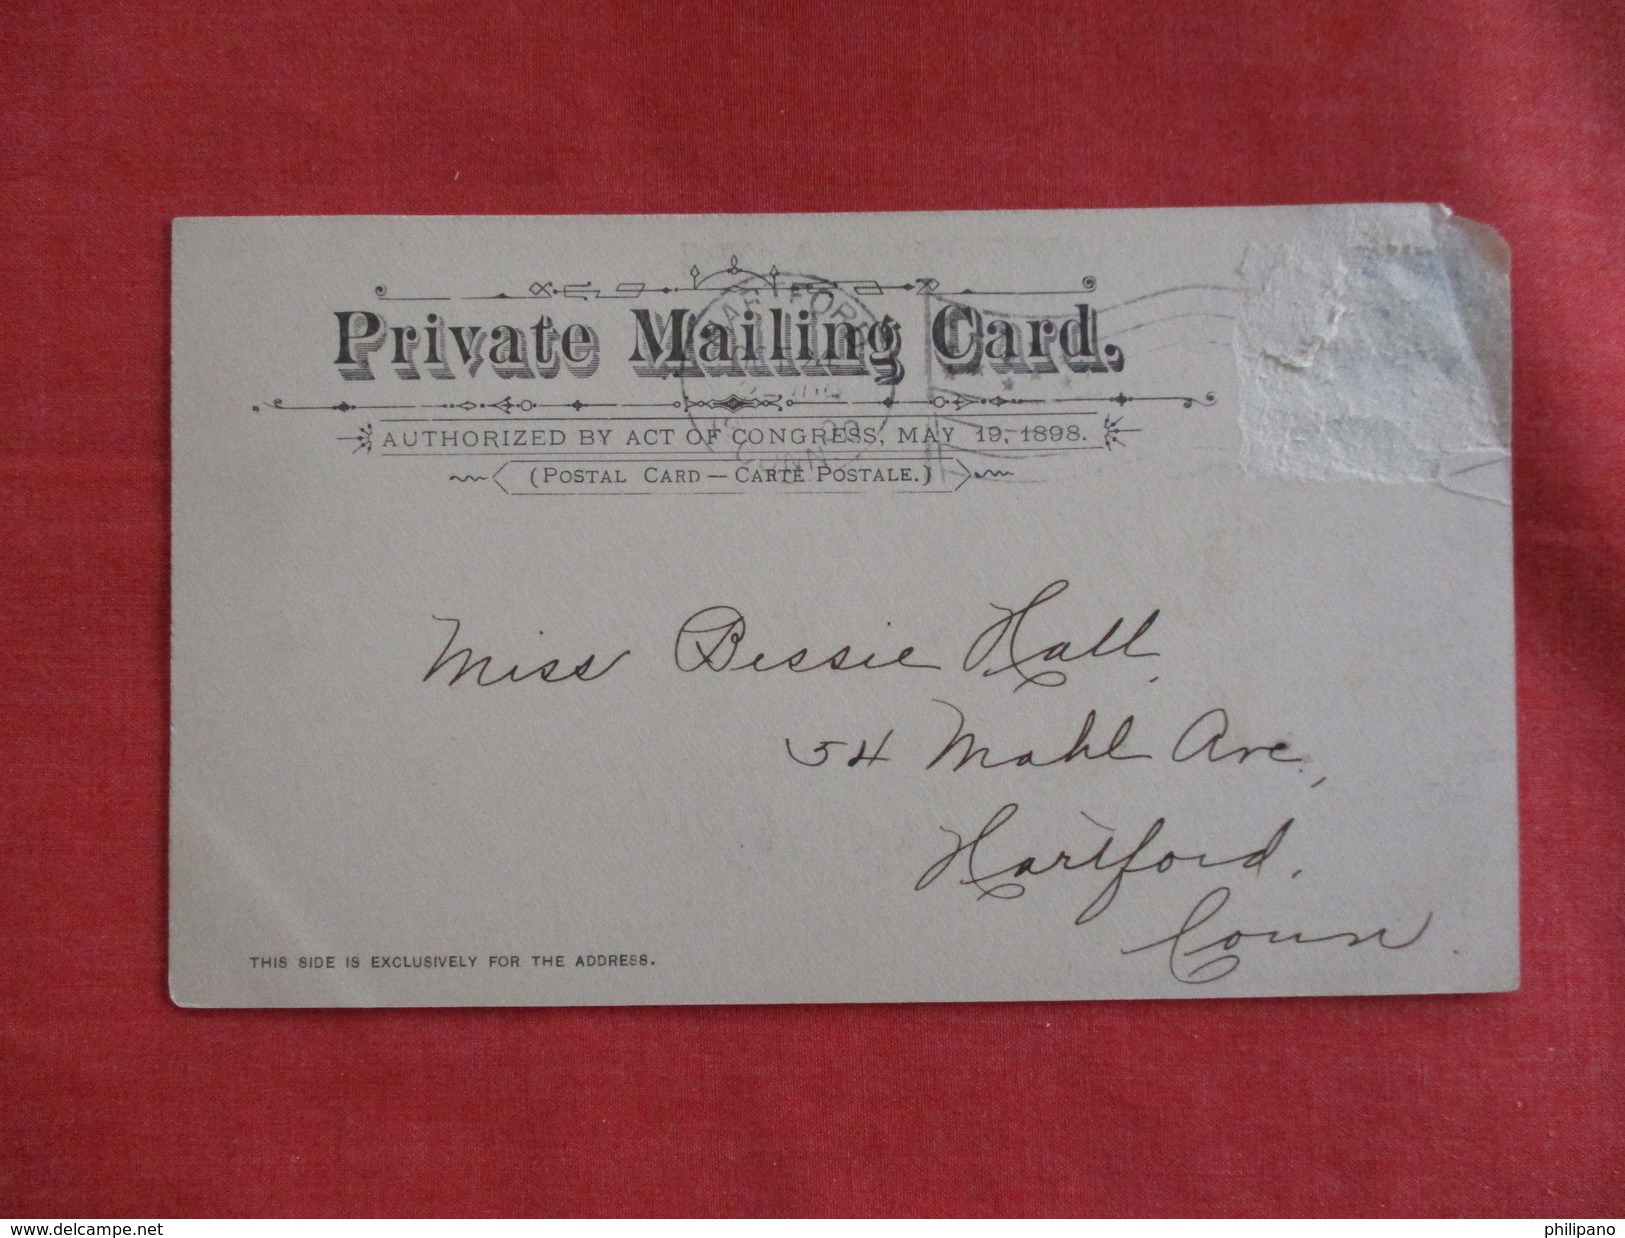 Private Mailing Card.
AUTHORIZED BY ACT OF CONGRESS, MAY 19, 1898.
(POSTAL CARD — CARTE POSTALE.)
HARTFORD
CONN.
Miss Bessie Hall.
54 Mahl Ave.,
Hartford.
Conn.
THIS SIDE IS EXCLUSIVELY FOR THE ADDRESS.
www.delcampe.net
philipano